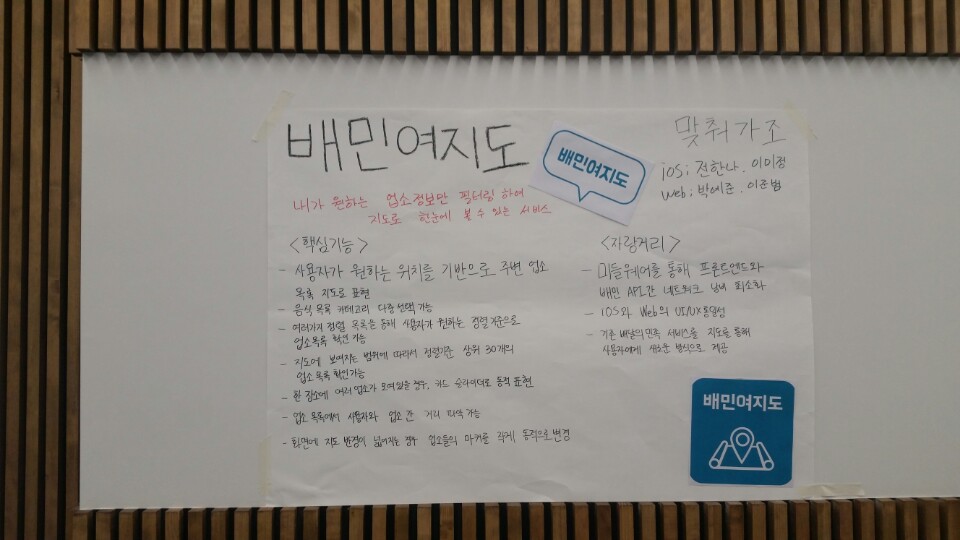 배민여지도
배민여지도
맞춰가조
iOS; 전한나. 이이정
Web; 박예준. 이준범
내가 원하는 업소정보만 필터링 하여
지도로 한눈에 볼 수 있는 서비스
<핵심기능>
- 사용자가 원하는 위치를 기반으로 주변 업소
목록 지도로 표현
- 음식 목록 카테고리 다중 선택 가능
- 여러가지 정렬 목록을 통해 사용자가 원하는 정렬기준으로
업소목록 확인 가능
- 지도에 보여지는 범위에 따라서 정렬기준 상위 30개의
업소 목록 확인가능
- 한 장소에 여러 업소가 모여있을 경우, 카드 슬라이더로 동적 표현
- 업소 목록에서 사용자와 업소 간 거리 파악 가능
- 화면에 지도 반경이 넓어지는 경우 업소들의 마커를 작게 동적으로 변경
<자랑거리>
- 미들웨어를 통해 프론트엔드와
배민 API간 네트워크 낭비 최소화
- iOS와 Web의 UI/UX 통일성
- 기존 배달의민족 서비스를 지도를 통해
사용자에게 새로운 방식으로 제공
배민여지도